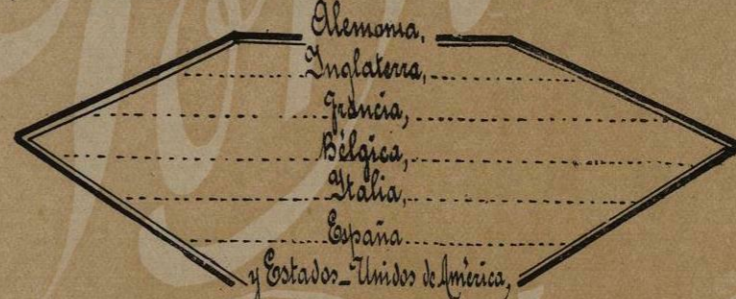 Alemania,
Inglaterra,
Francia,
Bélgica,
Italia,
España
y Estados-Unidos de América,